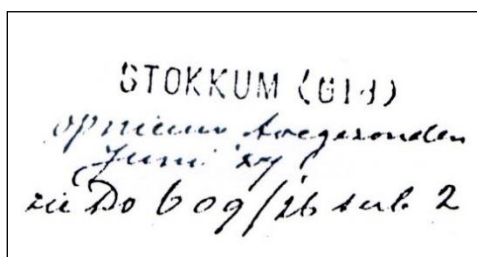 STOKKUM (Gld)
opnieuw toegezonden
Juni
zie Do 609/26 sub. 2